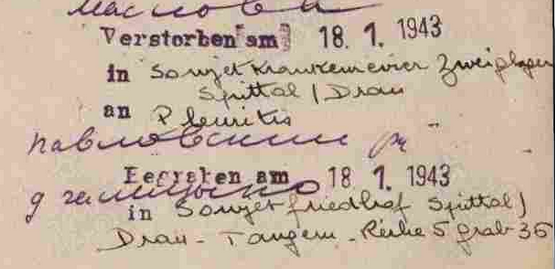 Verstorben am 18. 1. 1943
in Sowjet Krankenrevier Zweiglager
Spittal / Drau
an Pleuritis
Begraben am 18 1. 1943
in Sowjetfriedhof Spittal /
Drau - Tangern - Reihe 5 Grab 36